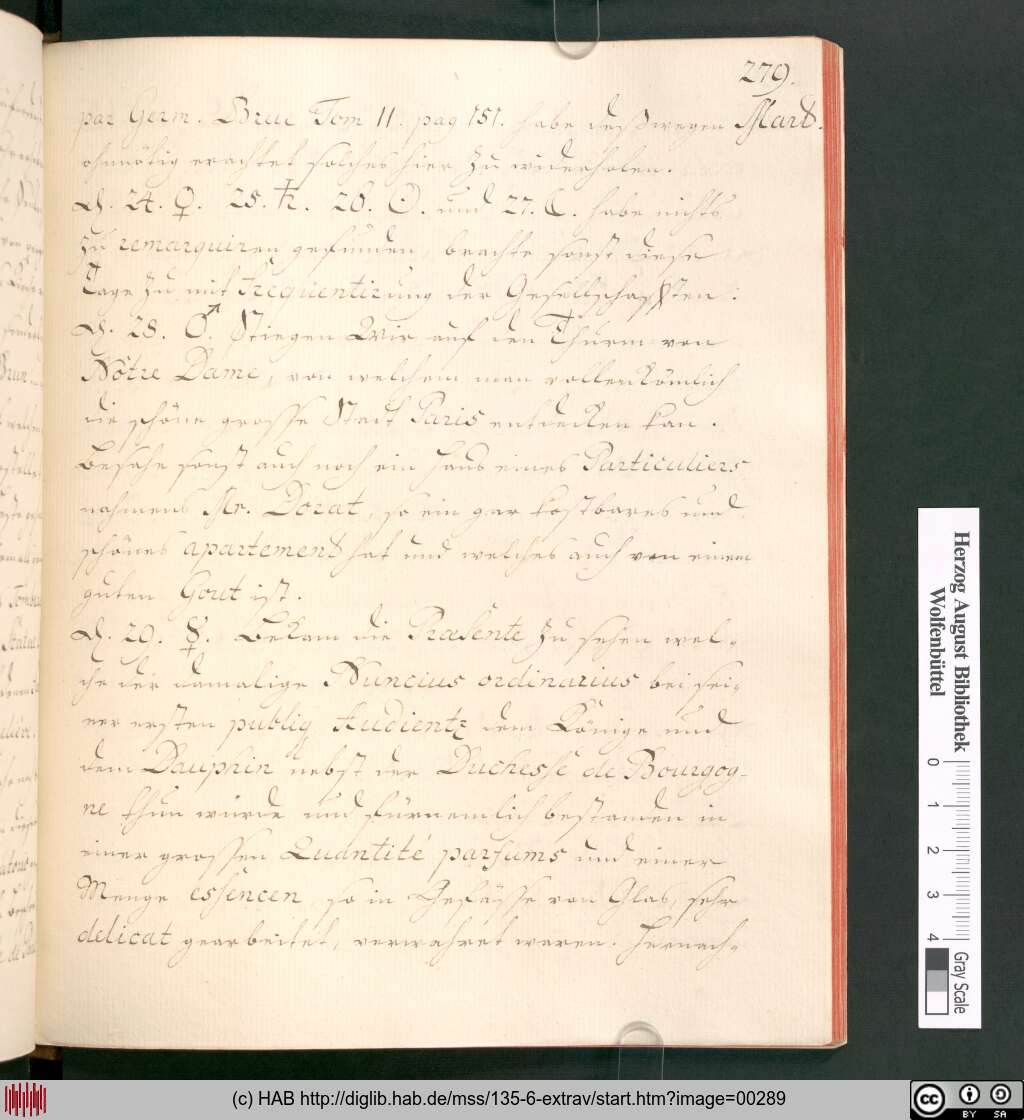 279.
par Germ. Brue Tom II. pag 151. habe deßwegen Mart.
ohnnötig erachtet solches hier zu widerholen.
D. 24. ♀. 25. ♄. 26. ☉. und 27. ☾. habe nichts
zu remarquiren gefunden, brachte sonst diese
Tage zu mit frequentirung der Gesellschafften:
D. 28. ♂. Stiegen Wir auf den Thurm von
Nôtre Dame, von welchem man vollenkömlich
die schöne grosse Stadt Paris entdecken kan.
Besahe sonst auch noch ein Haus eines Particuliers
nahmens Mr. Dorat, so ein gar kostbares und
schönes apartement hat und welches auch von einem
guten Gout ist.
D. 29. ☿. Bekam die Præsente zu sehen wel-
che der damalige Nuncius ordinarius bei sei-
ner ersten publiq Audientz dem Könige und
dem Dauphin nebst der Duchesse de Bourgog-
ne thun würde und fürnemlich bestanden in
einer grossen Quantité parfums und einer
Menge essencen, so in Gefässe von Glas, sehr
delicat gearbeitet, verwahret waren. Hernach-
Herzog August Bibliothek
Wolfenbüttel
0 1 2 3 4
Gray Scale
(c) HAB http://diglib.hab.de/mss/135-6-extrav/start.htm?image=00289
cc BY SA